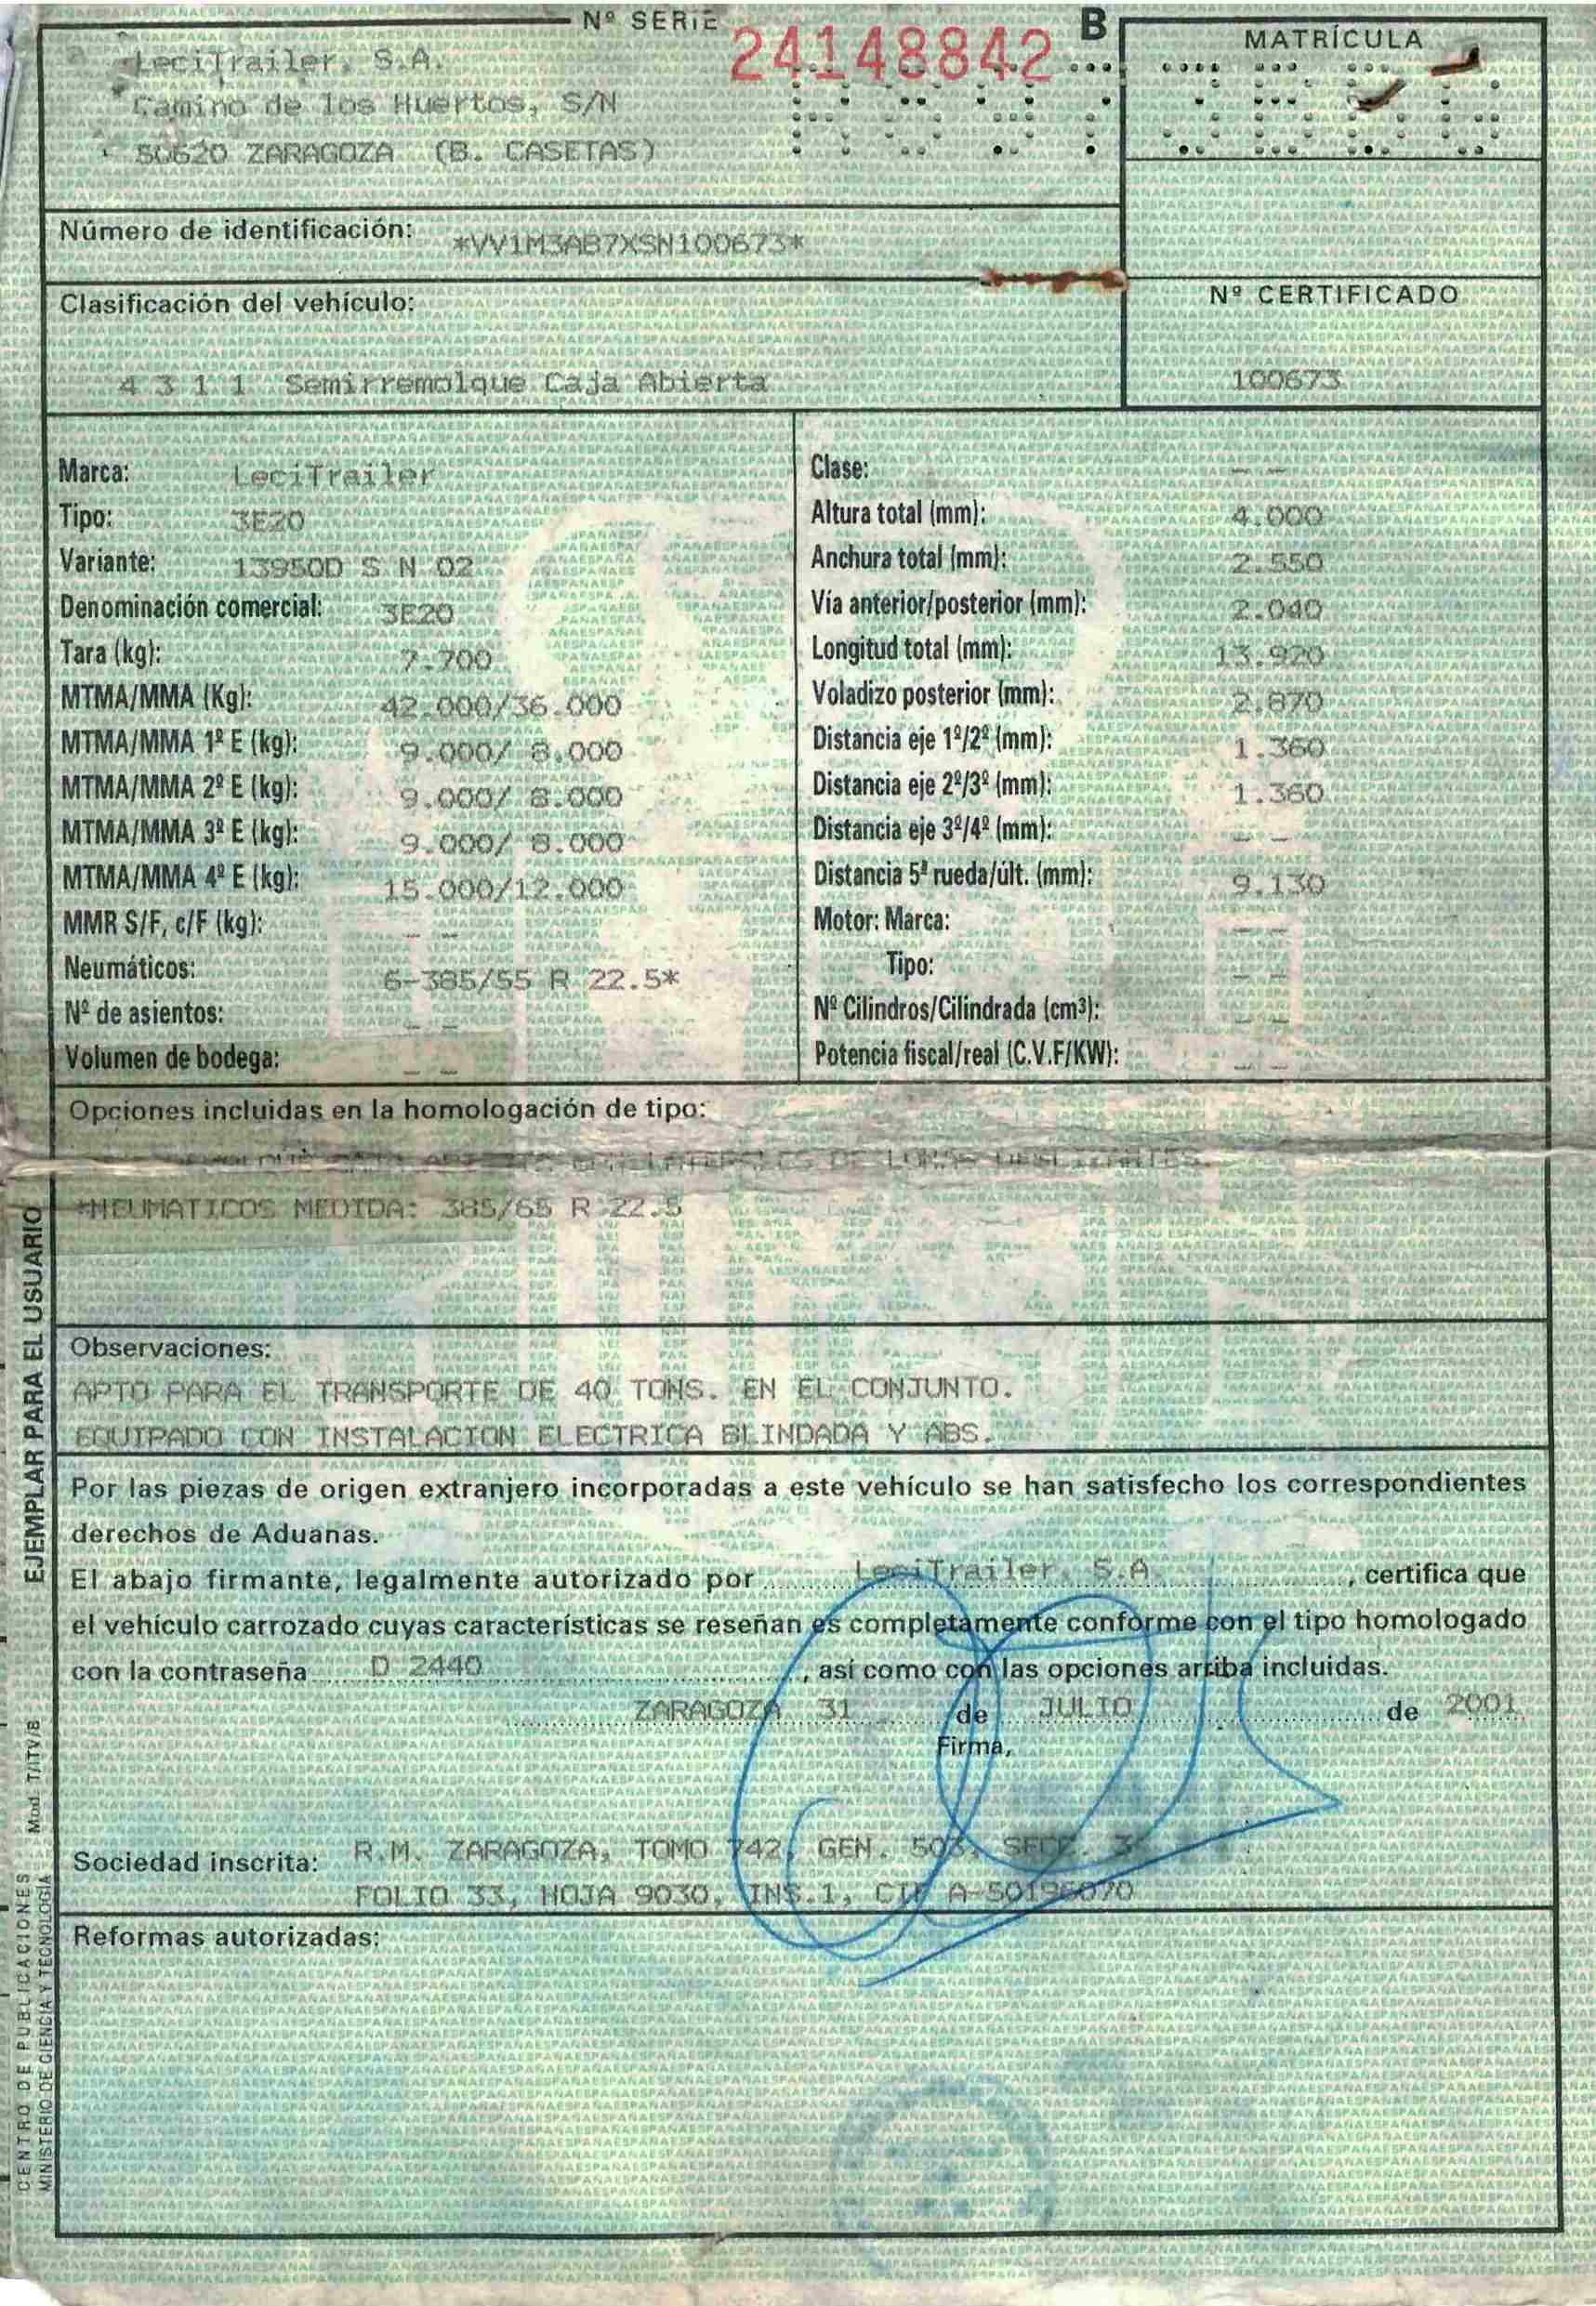 Nº SERIE 24148842 B
LeciTrailer, S.A.
Camino de los Huertos, S/N
50620 ZARAGOZA (B. CASETAS)
MATRÍCULA
Número de identificación: *VV1M3AB7XSN100673*
Clasificación del vehículo:
4 3 1 1 Semirremolque Caja Abierta
Nº CERTIFICADO
100673
Marca: LeciTrailer
Tipo: 3E20
Variante: 13950D S N 02
Denominación comercial: 3E20
Tara (kg): 7.700
MTMA/MMA (Kg): 42.000/36.000
MTMA/MMA 1º E (kg): 9.000/ 8.000
MTMA/MMA 2º E (kg): 9.000/ 8.000
MTMA/MMA 3º E (kg): 9.000/ 8.000
MTMA/MMA 4º E (kg): 15.000/12.000
MMR S/F, c/F (kg): — —
Neumáticos: 6-385/55 R 22.5*
Nº de asientos: — —
Volumen de bodega: — —
Clase: — —
Altura total (mm): 4.000
Anchura total (mm): 2.550
Vía anterior/posterior (mm): 2.040
Longitud total (mm): 13.920
Voladizo posterior (mm): 2.870
Distancia eje 1º/2º (mm): 1.360
Distancia eje 2º/3º (mm): 1.360
Distancia eje 3º/4º (mm): — —
Distancia 5ª rueda/últ. (mm): 9.130
Motor: Marca: — —
Tipo: — —
Nº Cilindros/Cilindrada (cm³): — —
Potencia fiscal/real (C.V.F/KW): — —
Opciones incluidas en la homologación de tipo:
CAJA ABIERTA CON LATERALES DE LONAS DESLIZANTES.
*NEUMATICOS MEDIDA: 385/65 R 22.5
Observaciones:
APTO PARA EL TRANSPORTE DE 40 TONS. EN EL CONJUNTO.
EQUIPADO CON INSTALACION ELECTRICA BLINDADA Y ABS.
Por las piezas de origen extranjero incorporadas a este vehículo se han satisfecho los correspondientes
derechos de Aduanas.
El abajo firmante, legalmente autorizado por LeciTrailer, S.A. , certifica que
el vehículo carrozado cuyas características se reseñan es completamente conforme con el tipo homologado
con la contraseña D 2440 , así como con las opciones arriba incluidas.
ZARAGOZA 31 de JULIO de 2001
Firma,
Sociedad inscrita: R.M. ZARAGOZA, TOMO 742, GEN. 503, SECC. 3
FOLIO 33, HOJA 9030, INS.1, CIF A-50196070
Reformas autorizadas:
EJEMPLAR PARA EL USUARIO
Mod. T/ITV/B
CENTRO DE PUBLICACIONES
MINISTERIO DE CIENCIA Y TECNOLOGÍA